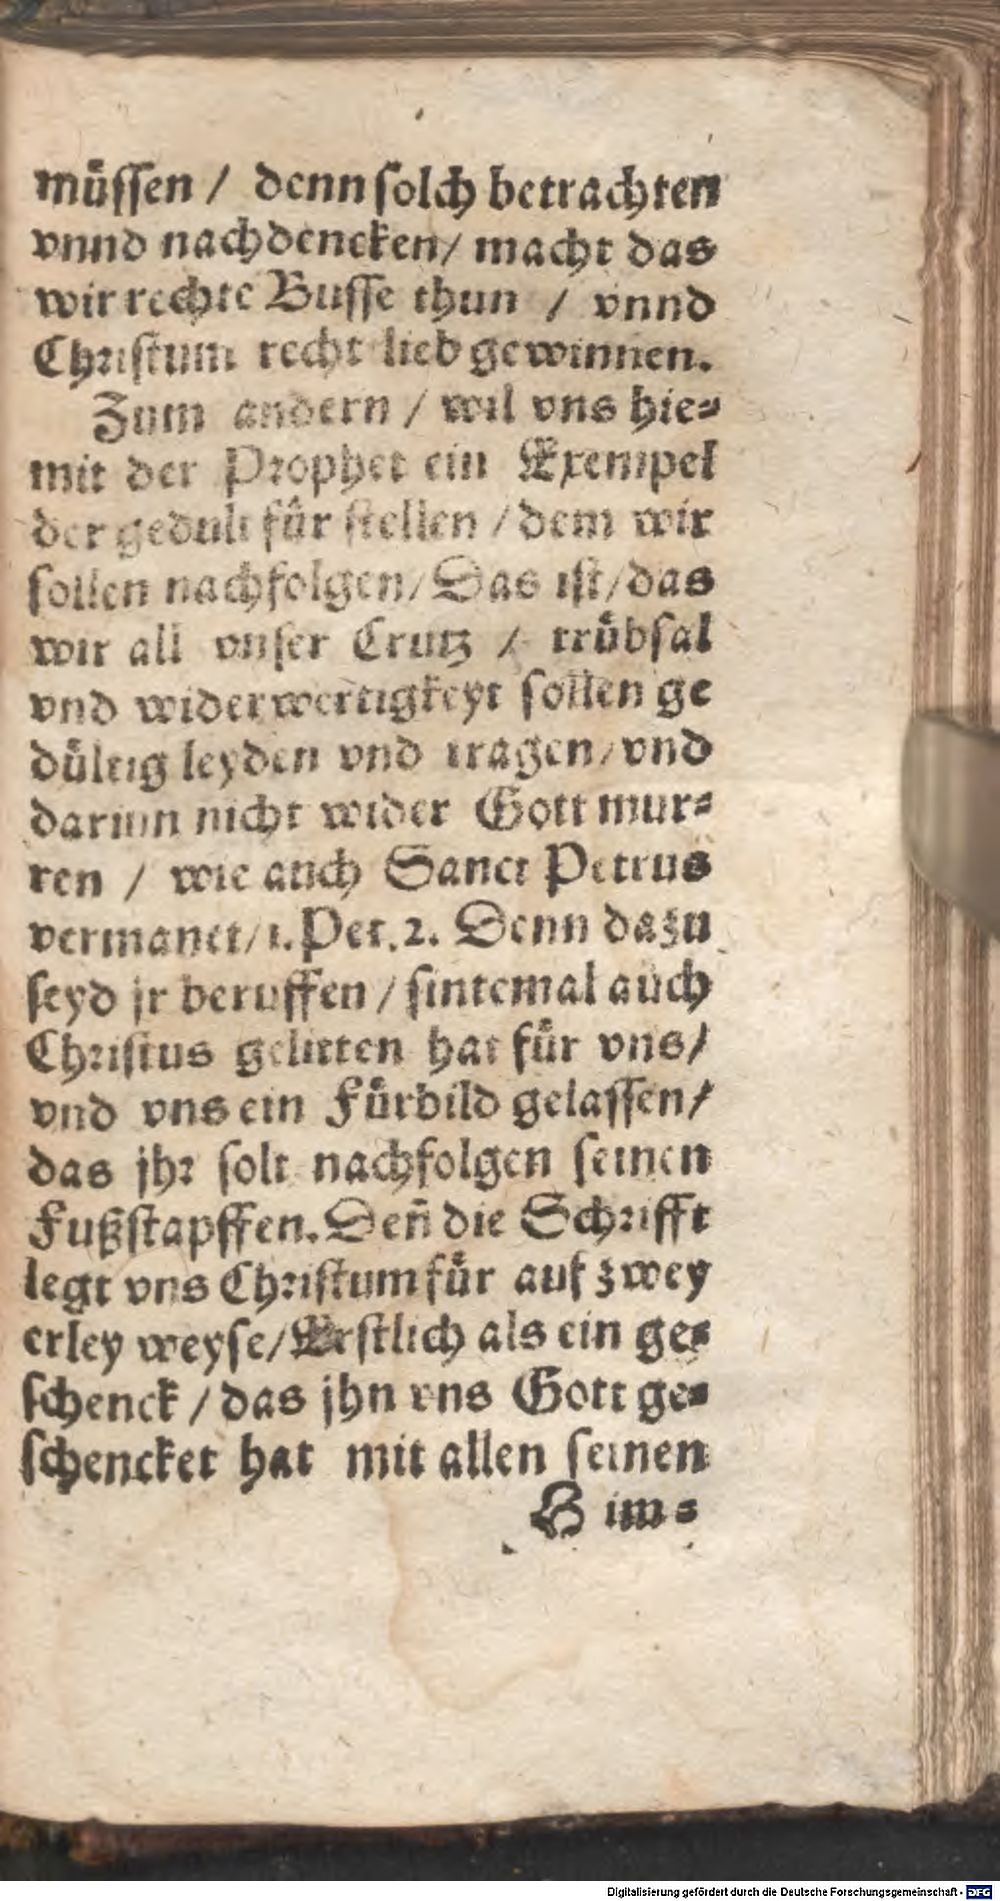 müſſen / denn ſolch betrachten
vnnd nachdencken / macht das
wir rechte Buſſe thun / vnnd
Chriſtum recht lieb gewinnen.
Zum andern / wil vns hie⸗
mit der Prophet ein Exempel
der gedult für ſtellen / dem wir
ſollen nachfolgen / Das iſt / das
wir all vnſer Crutz / trübſal
vnd widerwertigkeyt ſollen ge
dültig leyden vnd tragen / vnd
darumn nicht wider Gott mur⸗
ren / wie auch Sanct Petrus
vermanet / 1. Pet. 2. Denn dazu
ſeyd jr beruffen / ſintemal auch
Chriſtus gelitten hat für vns /
vnd vns ein Fürbild gelaſſen /
das jhr ſolt nachfolgen ſeinen
Fußſtapffen. Deñ die Schrifft
legt vns Chriſtum für auf zwey
erley weyſe / Erſtlich als ein ge⸗
ſchenck / das jhn vns Gott ge⸗
ſchencket hat mit allen ſeinen
B im⸗
Digitalisierung gefördert durch die Deutsche Forschungsgemeinschaft - DFG